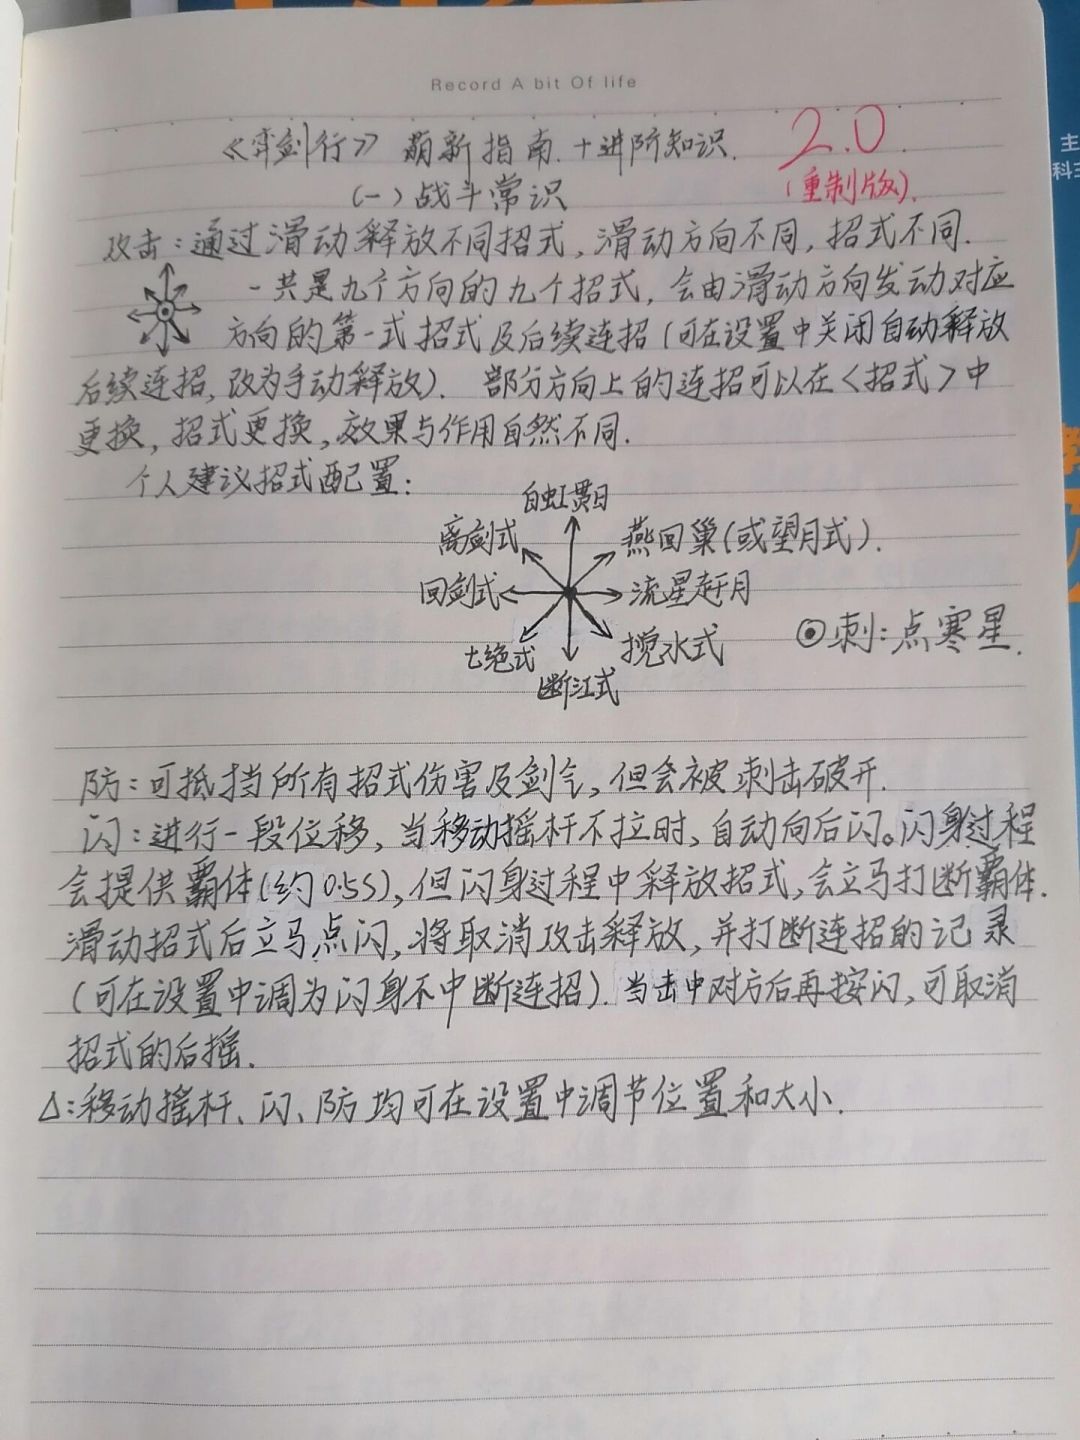 Record A bit Of life
《弈剑行》萌新指南.十进阶知识. 2.0
(一)战斗常识 (重制版).
攻击:通过滑动释放不同招式,滑动方向不同,招式不同.
一共是九个方向的九个招式,会由滑动方向发动对应
方向的第一式招式及后续连招(可在设置中关闭自动释放
后续连招,改为手动释放). 部分方向上的连招可以在<招式>中
更换,招式更换,效果与作用自然不同.
个人建议招式配置:
白虹贯日
离剑式
燕回巢(或望月式).
回剑式
流星赶月
七绝式
搅水式
断江式
⊙刺:点寒星.
防:可抵挡所有招式伤害及剑气,但会被刺击破开.
闪:进行一段位移,当移动摇杆不拉时,自动向后闪。闪身过程
会提供霸体(约0.5s),但闪身过程中释放招式,会立马打断霸体.
滑动招式后立马点闪,将取消攻击释放,并打断连招的记录
(可在设置中调为闪身不中断连招).当击中对方后再按闪,可取消
招式的后摇.
△:移动摇杆、闪、防均可在设置中调节位置和大小.
主
科